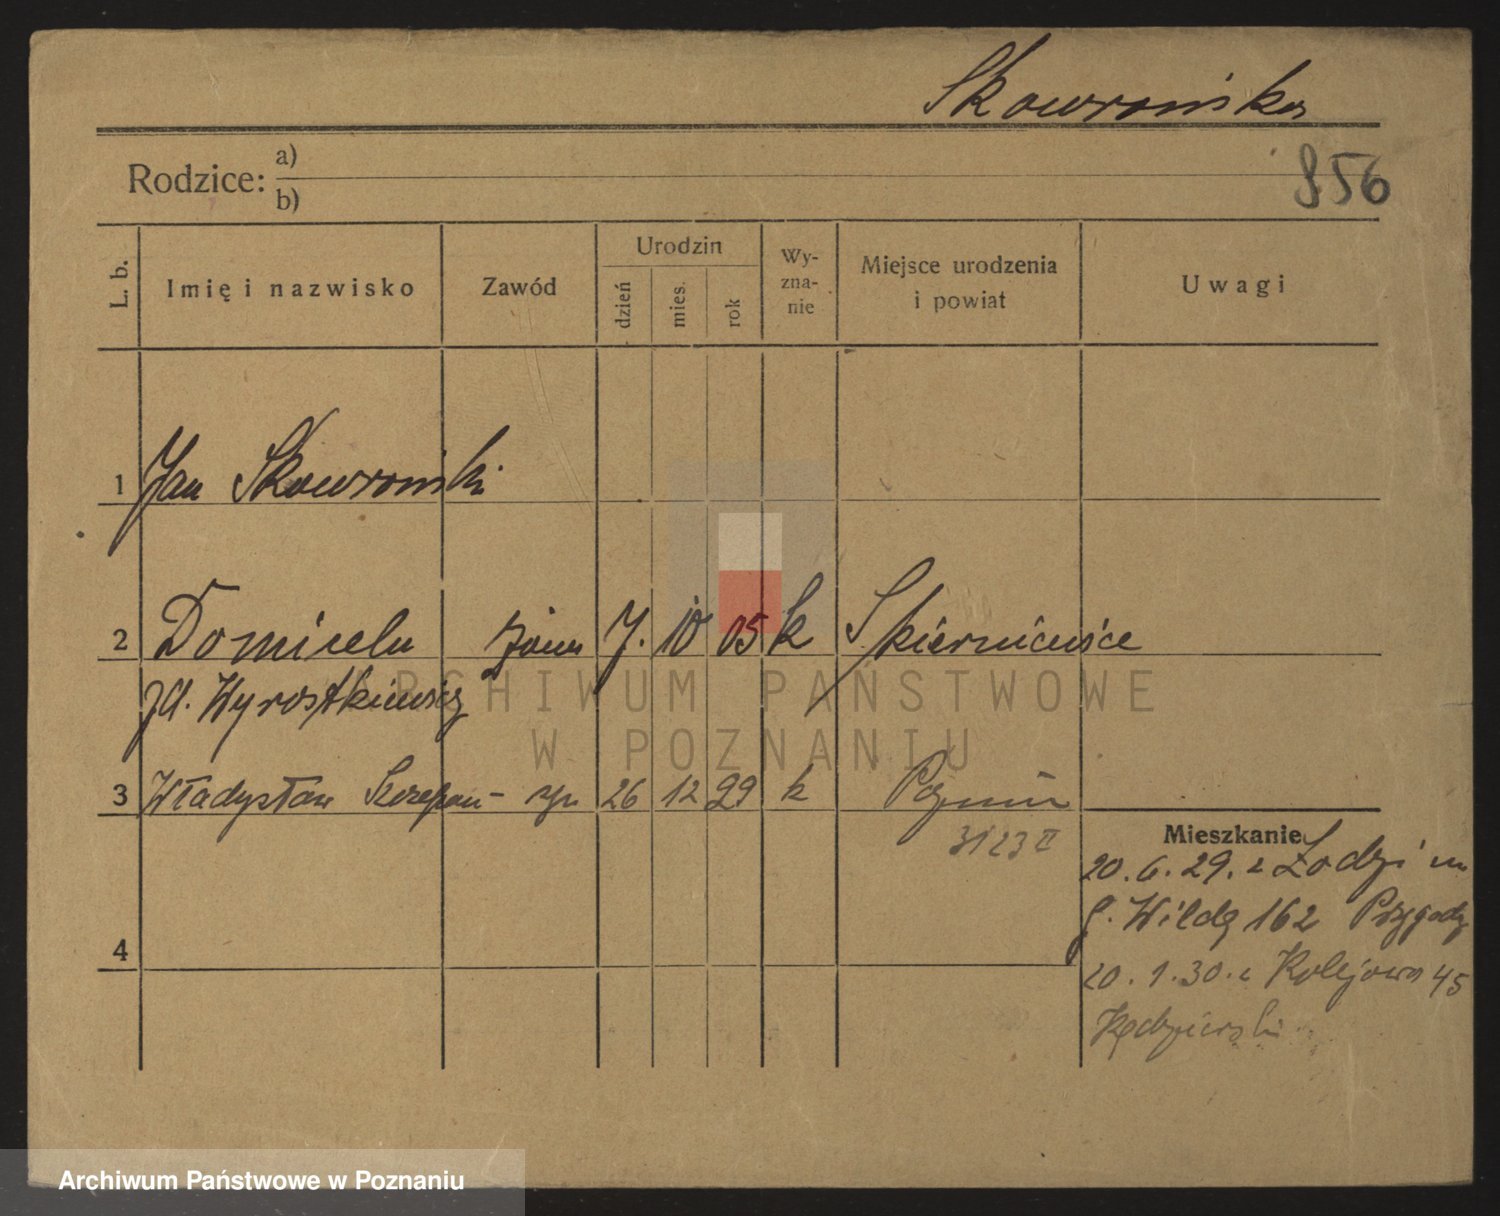 Skowrońska
856
Rodzice: a)
b)
L. b. Imię i nazwisko Zawód Urodzin dzień mies. rok Wyznanie Miejsce urodzenia i powiat Uwagi
1 Jan Skowroński
2 Domicela żona 7. 10 05 k Skierniewice
zd. Wyrostkiewicz
3 Władysław Szczepan - syn 26 12 29 k Poznań
3123 II
Mieszkanie
20. 6. 29. z Łodzi
G. Wilda 162 Przygodz
20. 1. 30. z Kolejowa 45
Kędzierski
4
ARCHIWUM PAŃSTWOWE
W POZNANIU
Archiwum Państwowe w Poznaniu